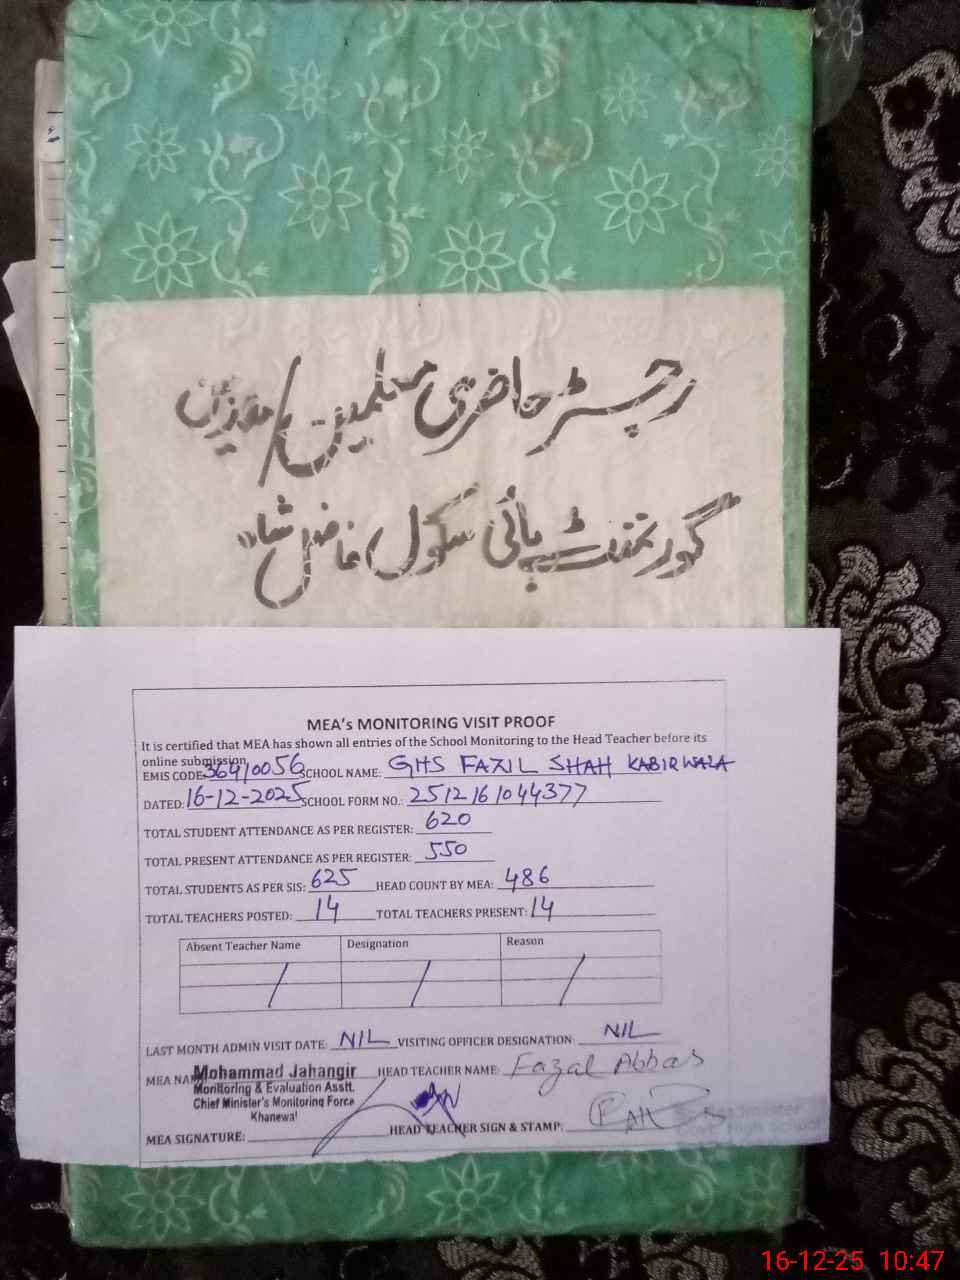 رجسٹر حاضری معلمین / معززین
گورنمنٹ ہائی سکول فاضل شاہ
MEA's MONITORING VISIT PROOF
It is certified that MEA has shown all entries of the School Monitoring to the Head Teacher before its
online submission.
EMIS CODE: 36410056 SCHOOL NAME: GHS FAZIL SHAH KABIRWALA
DATED: 16-12-2025 SCHOOL FORM NO.: 2512161044377
TOTAL STUDENT ATTENDANCE AS PER REGISTER: 620
TOTAL PRESENT ATTENDANCE AS PER REGISTER: 550
TOTAL STUDENTS AS PER SIS: 625 HEAD COUNT BY MEA: 486
TOTAL TEACHERS POSTED: 14 TOTAL TEACHERS PRESENT: 14
Absent Teacher Name Designation Reason
/ / /
LAST MONTH ADMIN VISIT DATE: NIL VISITING OFFICER DESIGNATION: NIL
MEA NAME Mohammad Jahangir HEAD TEACHER NAME: Fazal Abbas
Monitoring & Evaluation Asstt.
Chief Minister's Monitoring Force
Khanewal
MEA SIGNATURE: HEAD TEACHER SIGN & STAMP:
High School
16-12-25 10:47